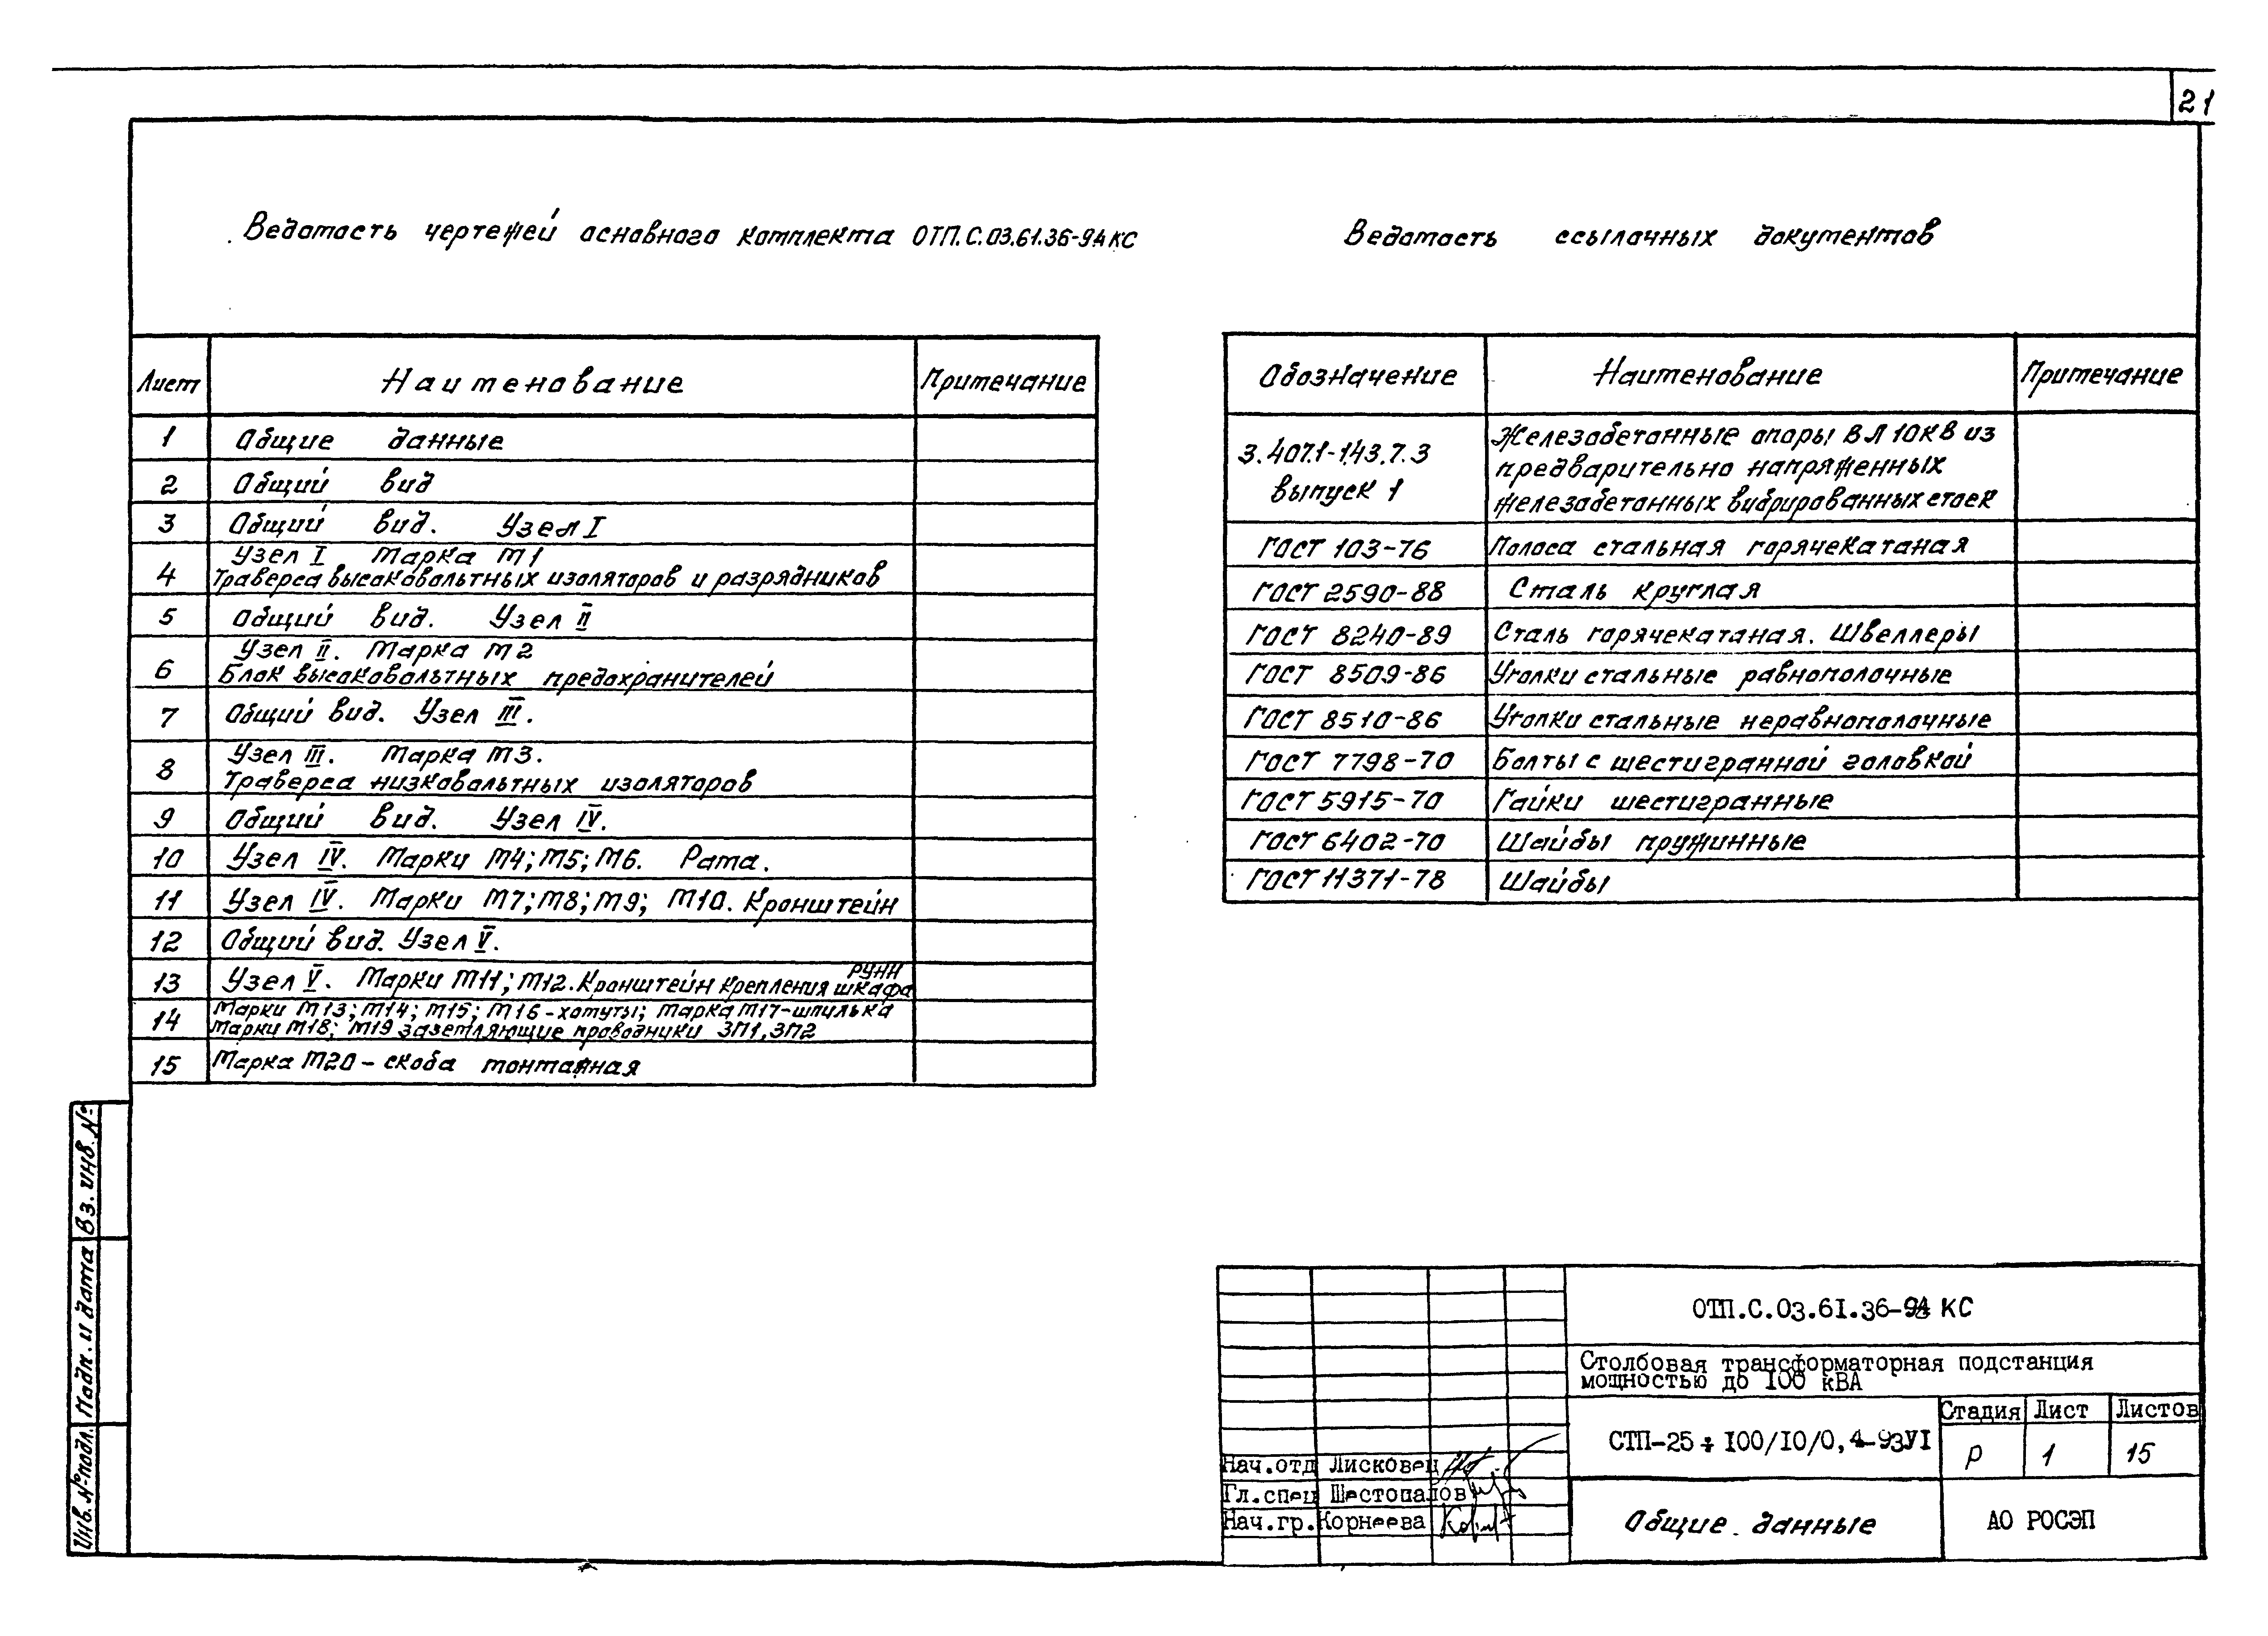 21
Ведомость чертежей основного комплекта ОТП.С.03.61.36-94 КС
Лист Наименование Примечание
1 Общие данные
2 Общий вид
3 Общий вид. Узел I
4 Узел I Марка М1
Траверса высоковольтных изоляторов и разрядников
5 Общий вид. Узел II
6 Узел II. Марка М2
Блок высоковольтных предохранителей
7 Общий вид. Узел III.
8 Узел III. Марка М3.
Траверса низковольтных изоляторов
9 Общий вид. Узел IV.
10 Узел IV. Марки М4; М5; М6. Рама.
11 Узел IV. Марки М7; М8; М9; М10. Кронштейн
12 Общий вид. Узел V.
13 Узел V. Марки М11; М12. Кронштейн крепления шкафа РУНН
14 Марки М13; М14; М15; М16-хомуты; Марка М17-шпилька
Марки М18; М19 заземляющие проводники ЗП1, ЗП2
15 Марка М20 - скоба монтажная
Ведомость ссылочных документов
Обозначение Наименование Примечание
3.407.1-143.7.3 выпуск 1
Железобетонные опоры ВЛ 10кВ из
предварительно напряженных
железобетонных вибрированных стоек
ГОСТ 103-76 Полоса стальная горячекатаная
ГОСТ 2590-88 Сталь круглая
ГОСТ 8240-89 Сталь горячекатаная. Швеллеры
ГОСТ 8509-86 Уголки стальные равнополочные
ГОСТ 8510-86 Уголки стальные неравнополочные
ГОСТ 7798-70 Болты с шестигранной головкой
ГОСТ 5915-70 Гайки шестигранные
ГОСТ 6402-70 Шайбы пружинные
ГОСТ 11371-78 Шайбы
Вз. инв. №
Подп. и дата
Инв. № подл.
ОТП.С.03.61.36-94 КС
Столбовая трансформаторная подстанция
мощностью до 100 кВА
СТП-25÷100/10/0,4-93У1
Стадия Лист Листов
Р 1 15
Нач.отд Лисковец
Гл.спец Шестопалов
Нач.гр. Корнеева
Общие данные
АО РОСЭП